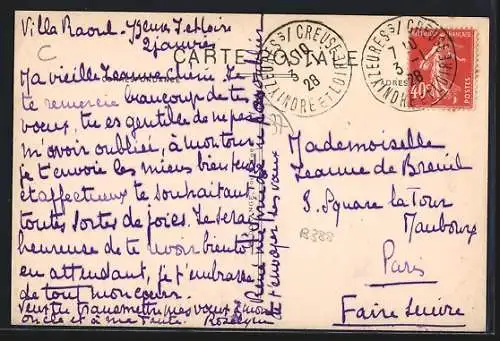 Villa Raoul. Yzeures I. et Loire
2 janvier
CARTE POSTALE
Ma vieille Jeanne chérie. Je
te remercie beaucoup de tes
vœux, tu es gentille de ne pas
m'avoir oubliée, à mon tour
je t'envoie les miens bien tendres
et affectueux te souhaitant
toutes sortes de joies. Je serai
heureuse de te voir bientôt
en attendant, je t'embrasse
de tout mon cœur.
Veux-tu transmettre mes vœux à mon
oncle et à ma Tante.
de t'envoyer ses vœux
YZEURES S/ CREUSE
INDRE ET LOIRE
3
28
YZEURES S/ CREUSE
INDRE ET LOIRE
7 10
3
28
40c
POSTES
Mademoiselle
Jeanne de Breuil
3. Square La Tour
Maubourg
Paris
Faire suivre